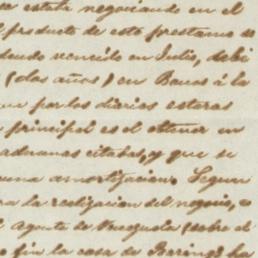 se estaba negociando en el
l producto de este prestamo se
dendo vencido en Julio, debi
(dos años) en Bonos á la
ue por los diarios estaras
principal es el obtener un
aduanas citadas, y que se
una amortizacion. Segun
ra la realizacion del negocio, es
Agente de Venezuela (sobre el
fin la casa de Barring) ha